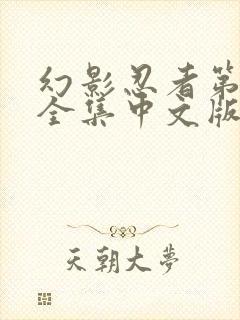 幻影忍者第
全集中文版
天朝大梦